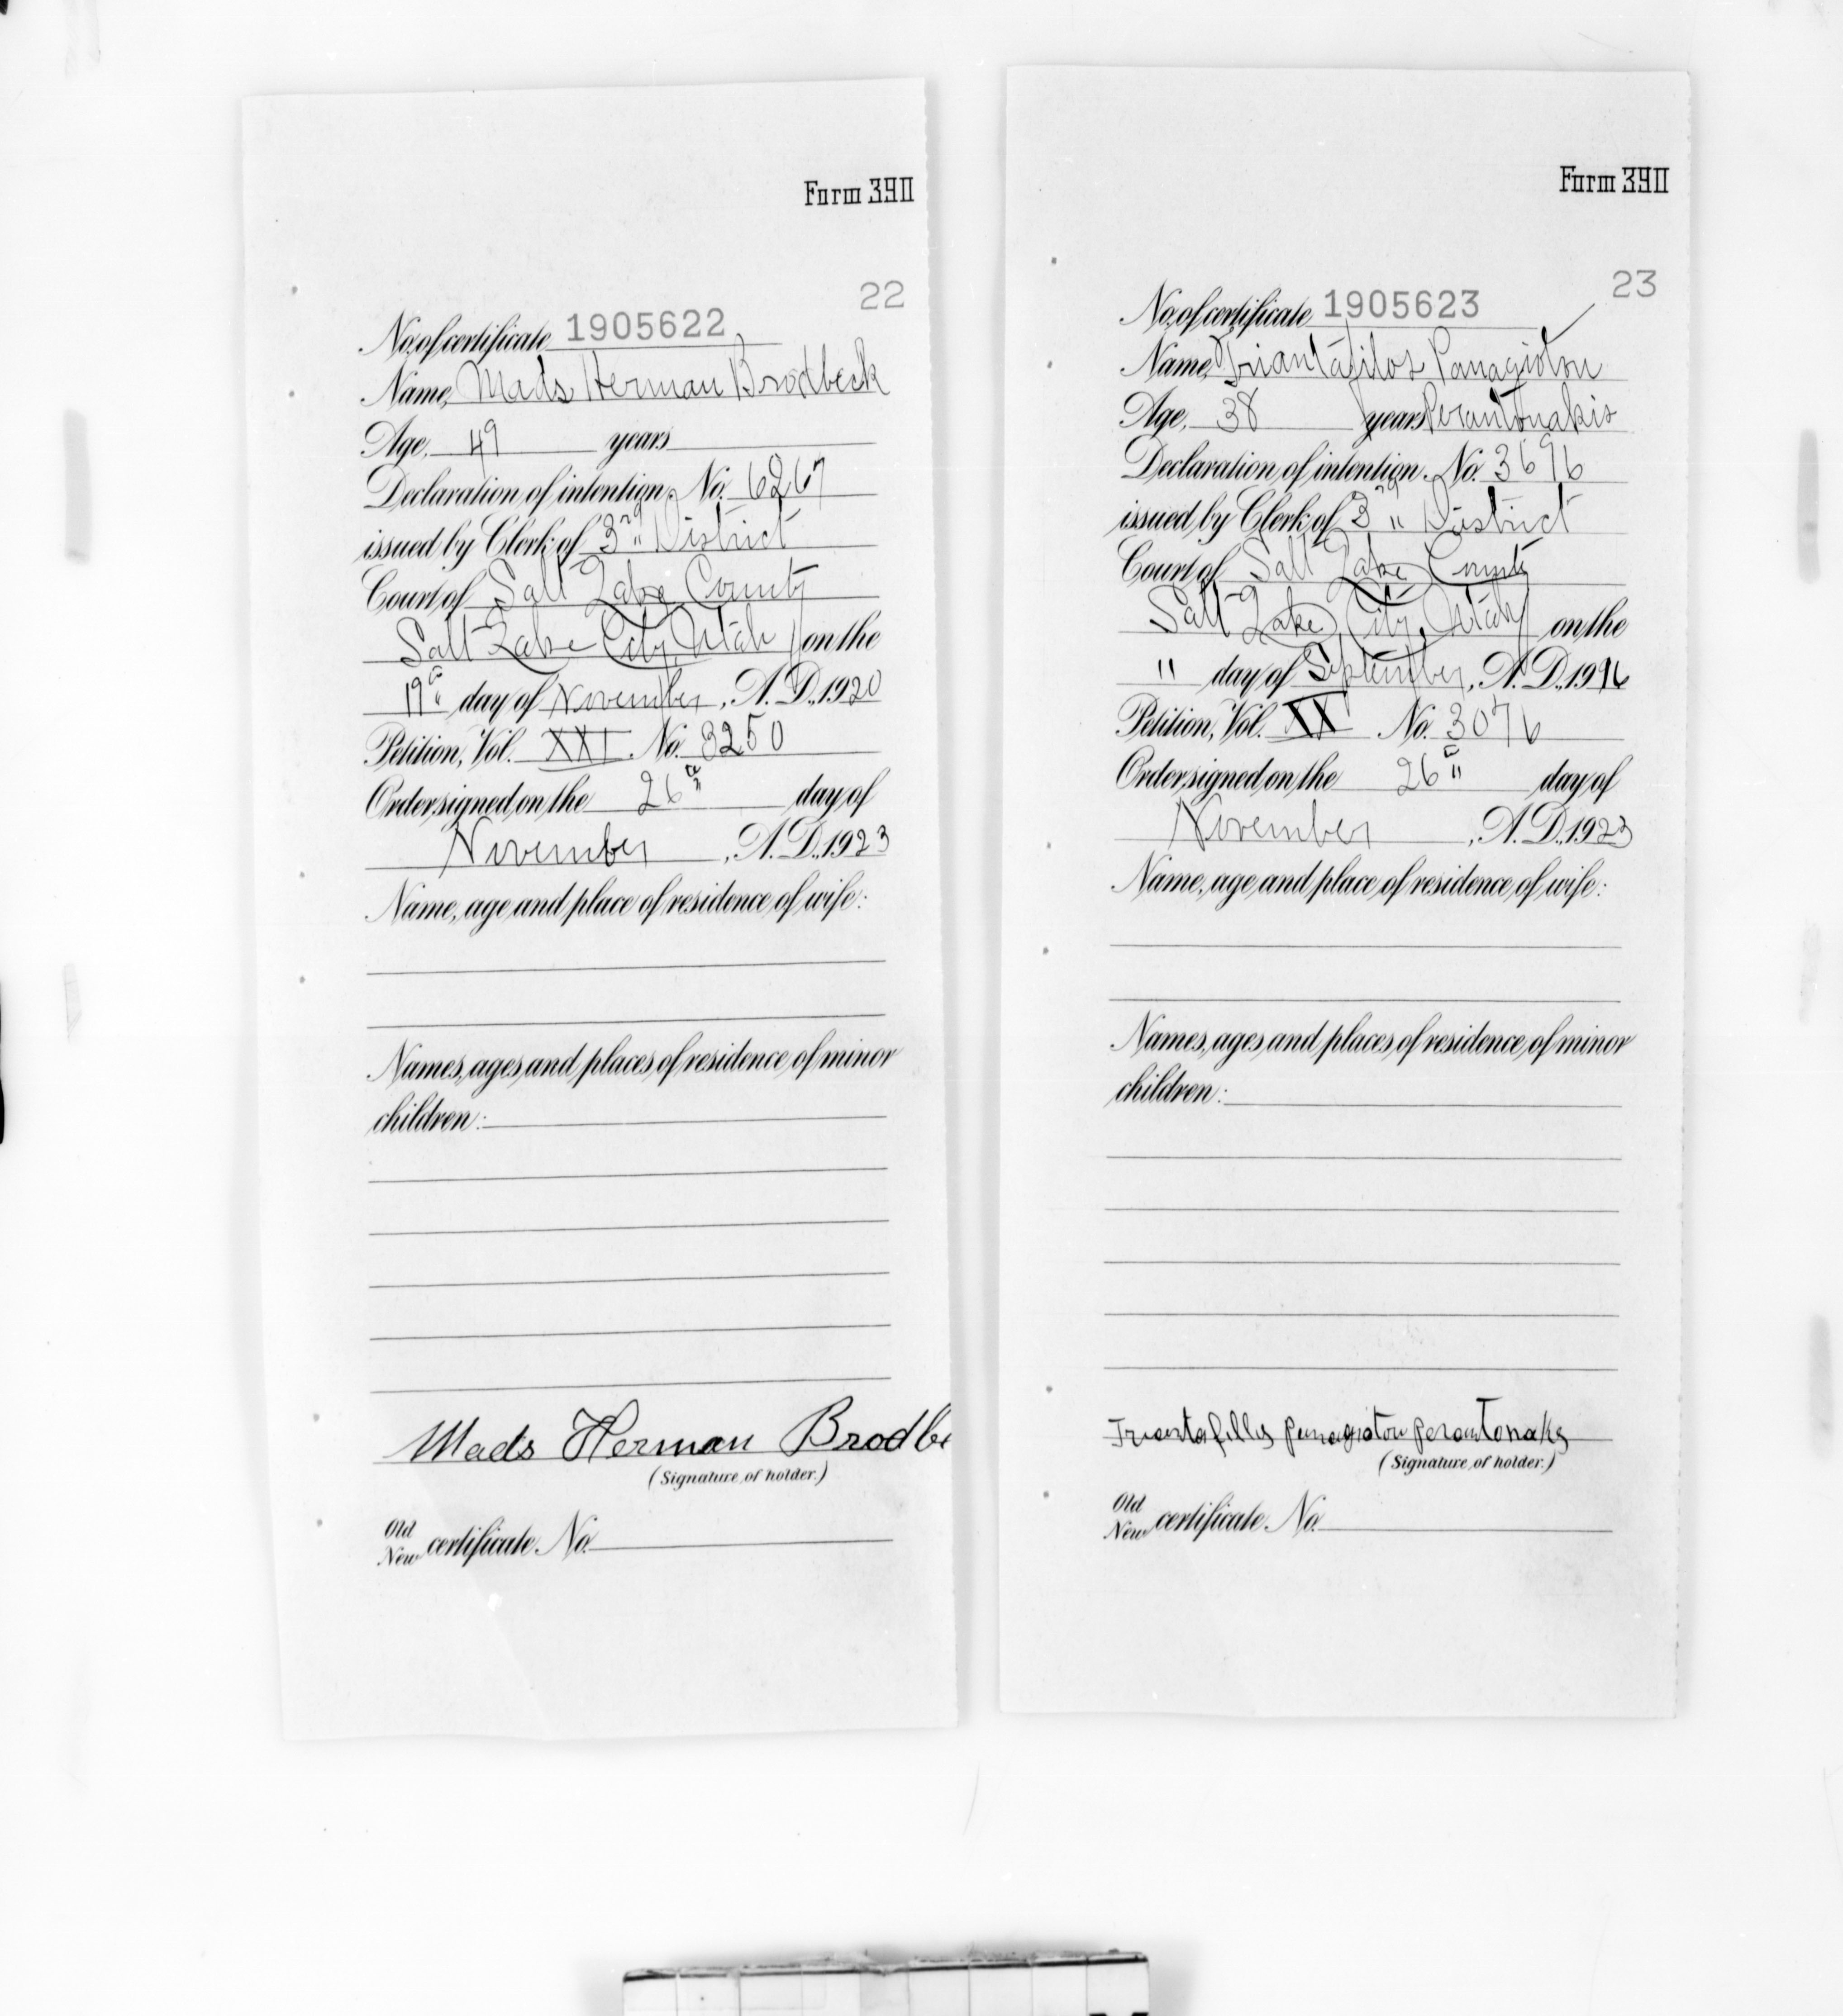 Form 390
22
No. of certificate 1905622
Name, Mads Herman Brodbeck
Age, 49 years
Declaration of intention, No. 6267
issued by Clerk of 3rd District
Court of Salt Lake County
Salt Lake City, Utah on the
19th day of November, A.D., 1920
Petition, Vol. XXI No. 3250
Order signed on the 26th day of
November, A.D., 1923
Name, age and place of residence of wife:
Names, ages and places of residence of minor
children:
Mads Herman Brodbe
(Signature of holder.)
Old
New certificate No.
Form 390
23
No. of certificate 1905623
Name, Triantafilos Panagiotou
Age, 38 years Perantonakis
Declaration of intention, No. 3696
issued by Clerk of 3rd District
Court of Salt Lake County
Salt Lake City, Utah on the
11 day of September, A.D., 1916
Petition, Vol. XX No. 3076
Order signed on the 26th day of
November, A.D., 1923
Name, age and place of residence of wife:
Names, ages and places of residence of minor
children:
Triantafillis panagiotou perantonakis
(Signature of holder.)
Old
New certificate No.